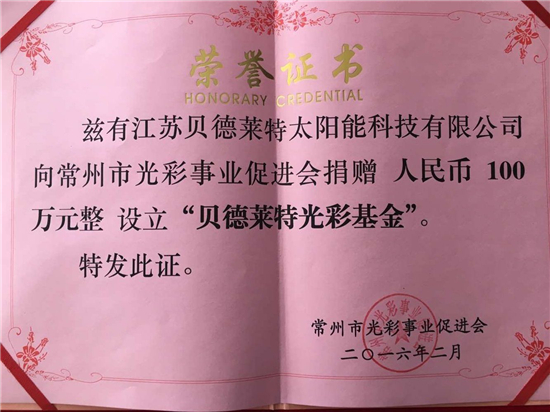 荣誉证书
HONORARY CREDENTIAL
兹有江苏贝德莱特太阳能科技有限公司
向常州市光彩事业促进会捐赠 人民币 100
万元整 设立“贝德莱特光彩基金”。
特发此证。
常州市光彩事业促进会
二〇一六年二月